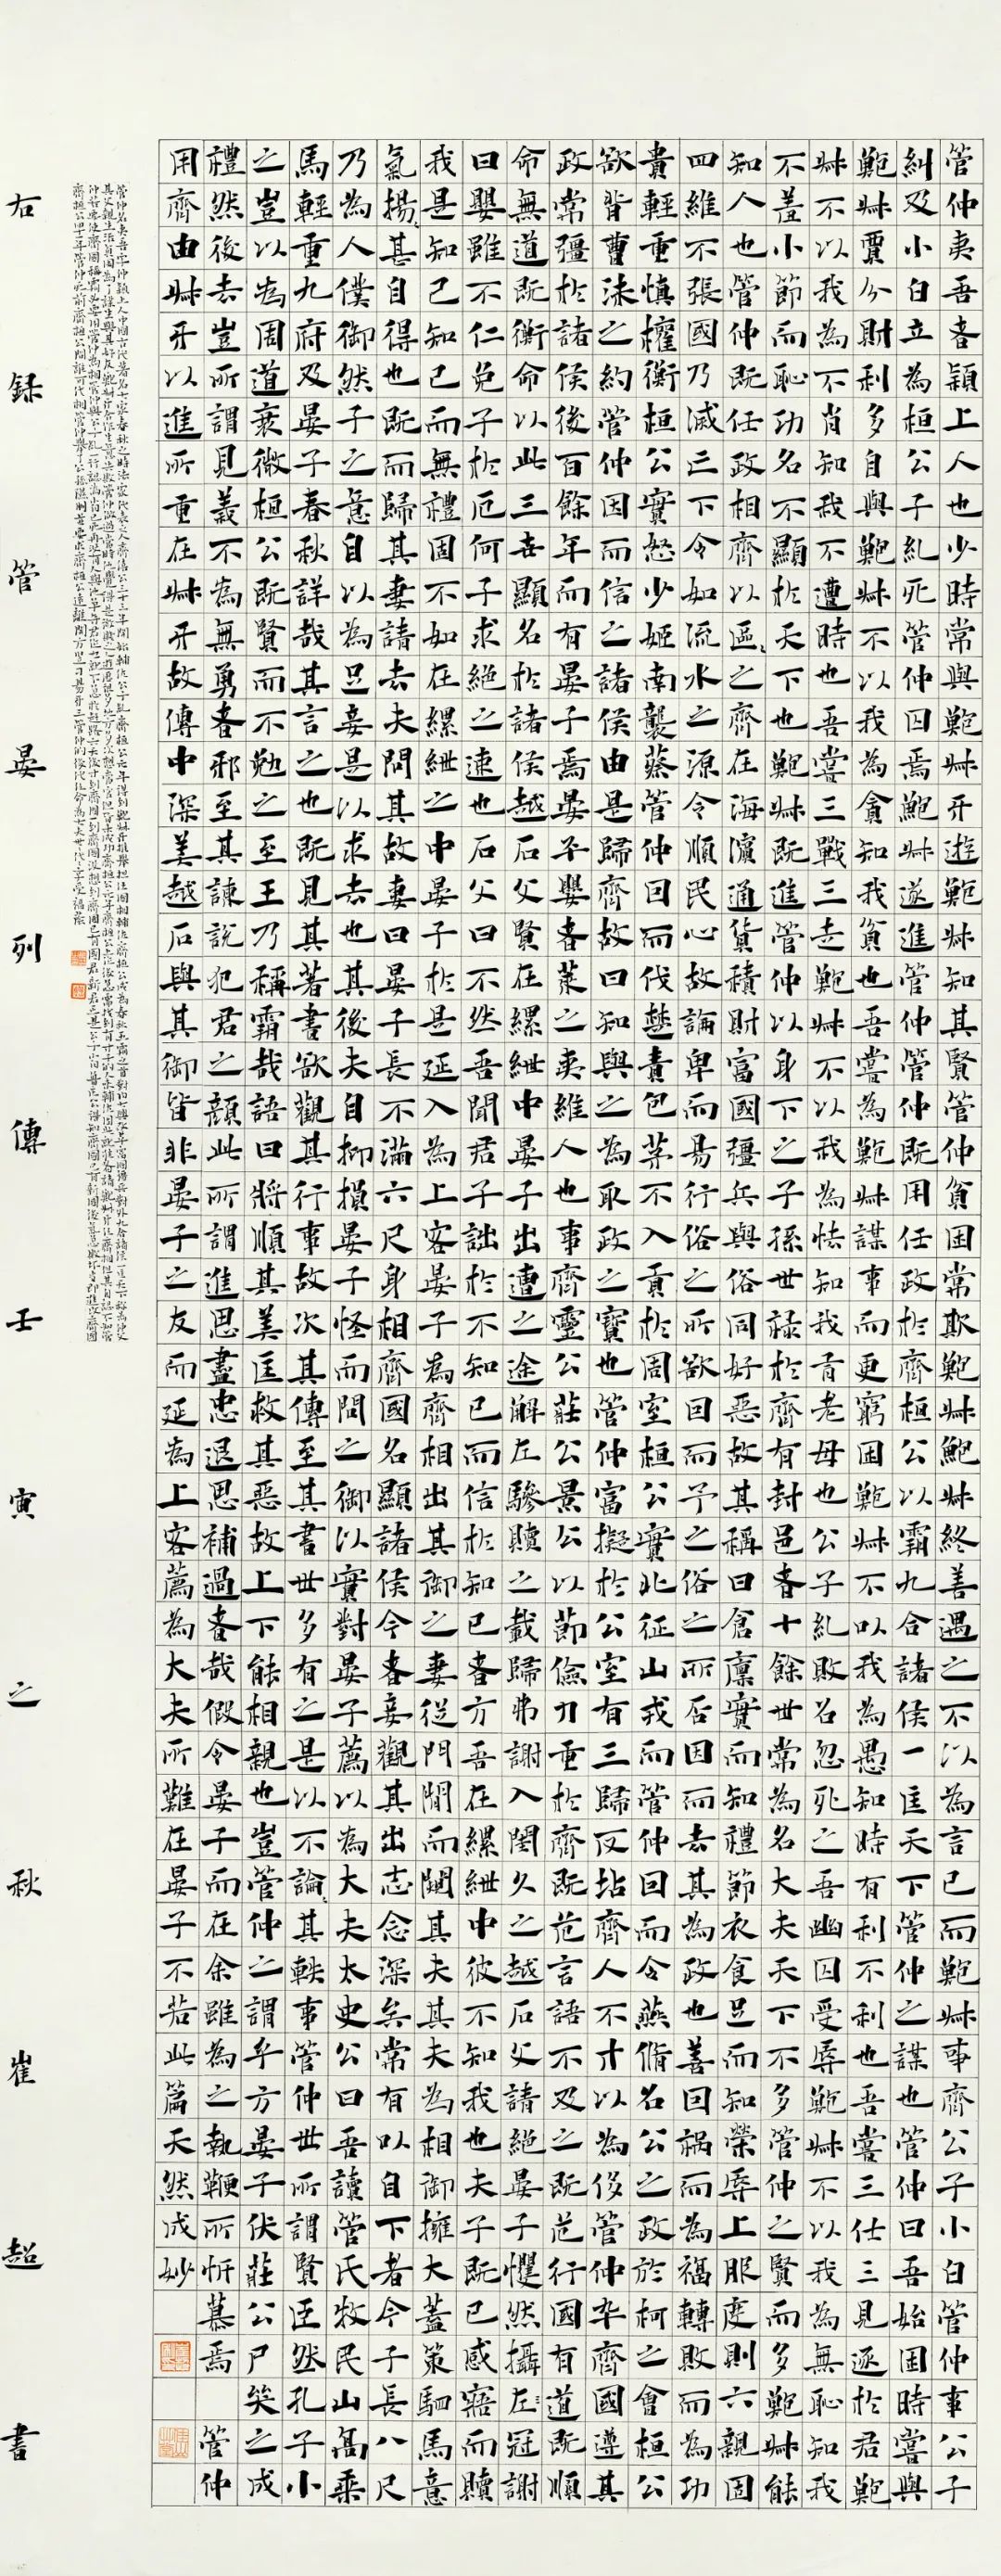 管仲夷吾者潁上人也少時常與鮑叔牙遊鮑叔知其賢管仲貧困常欺鮑叔鮑叔終善遇之不以為言已而鮑叔事齊公子小白管仲事公子
糾及小白立為桓公公子糺死管仲囚焉鮑叔遂進管仲管仲既用任政於齊桓公以霸九合諸侯一匡天下管仲之謀也管仲曰吾始困時嘗與
鮑叔賈分財利多自與鮑叔不以我為貪知我貧也吾嘗為鮑叔謀事而更窮困鮑叔不以我為愚知時有利不利也吾嘗三仕三見逐於君鮑
叔不以我為不肖知我不遭時也吾嘗三戰三走鮑叔不以我為怯知我有老母也公子糺敗召忽死之吾幽囚受辱鮑叔不以我為無恥知我
不羞小節而恥功名不顯於天下也鮑叔既進管仲以身下之子孫世祿於齊有封邑者十餘世常為名大夫天下不多管仲之賢而多鮑叔能
知人也管仲既任政相齊以區〻之齊在海濱通貨積財富國彊兵與俗同好惡故其稱曰倉廩實而知禮節衣食足而知榮辱上服度則六親固
四維不張國乃滅亡下令如流水之源令順民心故論卑而易行俗之所欲因而予之俗之所否因而去其為政也善因禍而為福轉敗而為功
貴輕重慎權衡桓公實怒少姬南襲蔡管仲因而伐楚責包茅不入貢於周室桓公實北征山戎而管仲因而令燕脩召公之政於柯之會桓公
欲背曹沬之約管仲因而信之諸侯由是歸齊故曰知與之為取政之寶也管仲富擬於公室有三歸反坫齊人不才以為侈管仲卒齊國遵其
政常彊於諸侯後百餘年而有晏子焉晏子嬰者萊之夷維人也事齊靈公莊公景公以節儉力重於齊既范言語不及之既范行國有道既順
命無道既衡命以此三世顯名於諸侯越石父賢在縲紲中晏子出遭之途解左驂贖之載歸弗謝入閨久之越石父請絕晏子懼然攝左冠謝
曰嬰雖不仁免子於厄何子求絕之速也石父曰不然吾聞君子詘於不知己而信於知己者方吾在縲紲中彼不知我也夫子既已感寤而贖
我是知己知己而無禮固不如在縲紲之中晏子於是延入為上客晏子為齊相出其御之妻從門間而闚其夫其夫為相御擁大蓋策駟馬意
氣揚甚自得也既而歸其妻請去夫問其故妻曰晏子長不滿六尺身相齊國名顯諸侯今者妾觀其出志念深矣常有以自下者今子長八尺
乃為人僕御然子之意自以為足妾是以求去也其後夫自抑損晏子怪而問之御以實對晏子薦以為大夫太史公曰吾讀管氏牧民山高乘
馬輕重九府及晏子春秋詳哉其言之也既見其著書欲觀其行事故次其傳至其書世多有之是以不論其軼事管仲世所謂賢臣然孔子小
之豈以為周道衰微桓公既賢而不勉之至王乃稱霸哉語曰將順其美匡救其惡故上下能相親也豈管仲之謂乎方晏子伏莊公尸哭之成
禮然後去豈所謂見義不為無勇者邪至其諫說犯君之顏此所謂進思盡忠退思補過者哉假令晏子而在余雖為之執鞭所忻慕焉 管仲
用齊由叔牙以進所重在叔牙故傳中深美越石與其御皆非晏子之友而延為上客薦為大夫所難在晏子不若此篇天然成妙
右録管晏列傳壬寅之秋崔超書